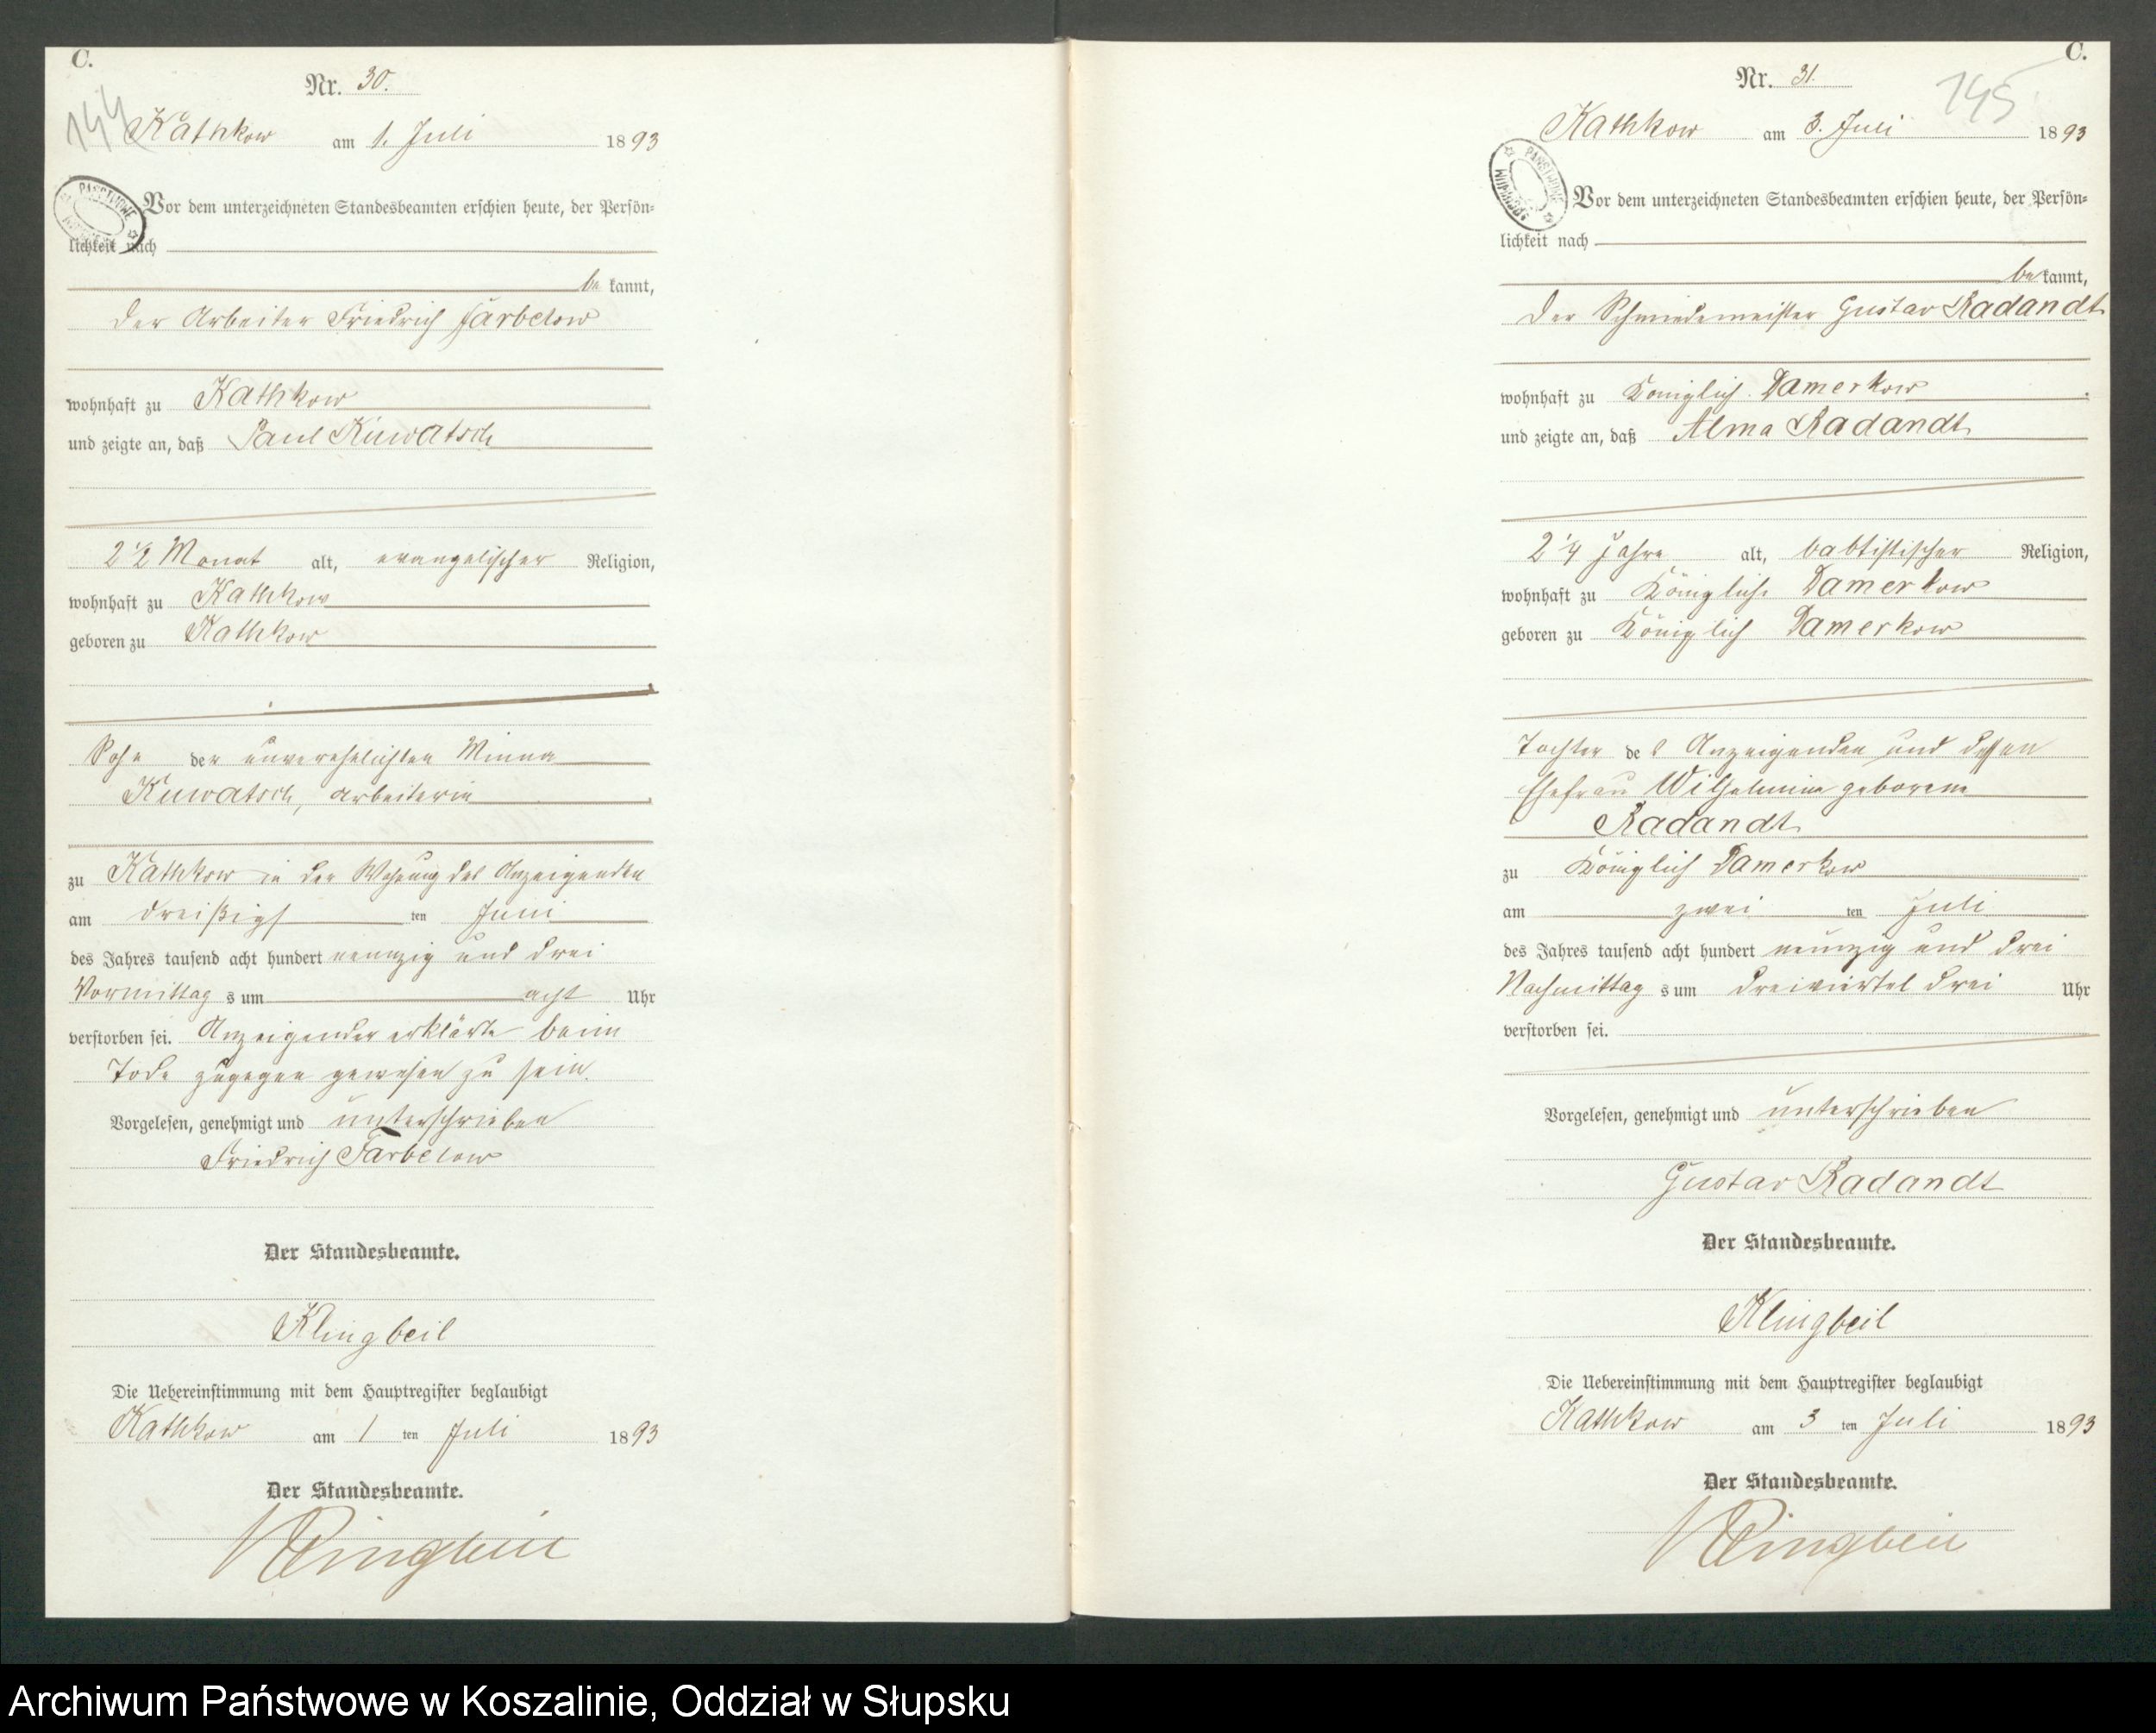 C.
Nr. 30.
144
Kathkow am 1. Juli 1893
Vor dem unterzeichneten Standesbeamten erschien heute, der Persön-
lichkeit nach
be kannt,
der Arbeiter Friedrich Farbelow
wohnhaft zu Kathkow
und zeigte an, daß Paul Kuwatsch
2 1/2 Monat alt, evangelischer Religion,
wohnhaft zu Kathkow
geboren zu Kathkow
Sohn der unverehelichten Minna
Kuwatsch, Arbeiterin
zu Kathkow in der Wohnung des Anzeigenden
am dreißigst ten Juni
des Jahres tausend acht hundert neunzig und drei
Vormittag s um acht Uhr
verstorben sei. Anzeigender erklärte beim
Tode zugegen gewesen zu sein.
Vorgelesen, genehmigt und unterschrieben
Friedrich Farbelow
Der Standesbeamte.
Klingbeil
Die Uebereinstimmung mit dem Hauptregister beglaubigt
Kathkow am 1 ten Juli 1893
Der Standesbeamte.
Klingbeil
C.
Nr. 31.
145
Kathkow am 3. Juli 1893
PAŃSTWOWE ARCHIWUM
Vor dem unterzeichneten Standesbeamten erschien heute, der Persön-
lichkeit nach
be kannt,
der Schmiedemeister Gustav Radandt
wohnhaft zu Königlich Damerkow
und zeigte an, daß Alma Radandt
2 1/4 Jahre alt, babtistischer Religion,
wohnhaft zu Königlich Damerkow
geboren zu Königlich Damerkow
Tochter des Anzeigenden und dessen
Ehefrau Wilhelmine geborene
Radandt
zu Königlich Damerkow
am zwei ten Juli
des Jahres tausend acht hundert neunzig und drei
Nachmittag s um dreiviertel drei Uhr
verstorben sei.
Vorgelesen, genehmigt und unterschrieben
Gustav Radandt
Der Standesbeamte.
Klingbeil
Die Uebereinstimmung mit dem Hauptregister beglaubigt
Kathkow am 3 ten Juli 1893
Der Standesbeamte.
Klingbeil
Archiwum Państwowe w Koszalinie, Oddział w Słupsku